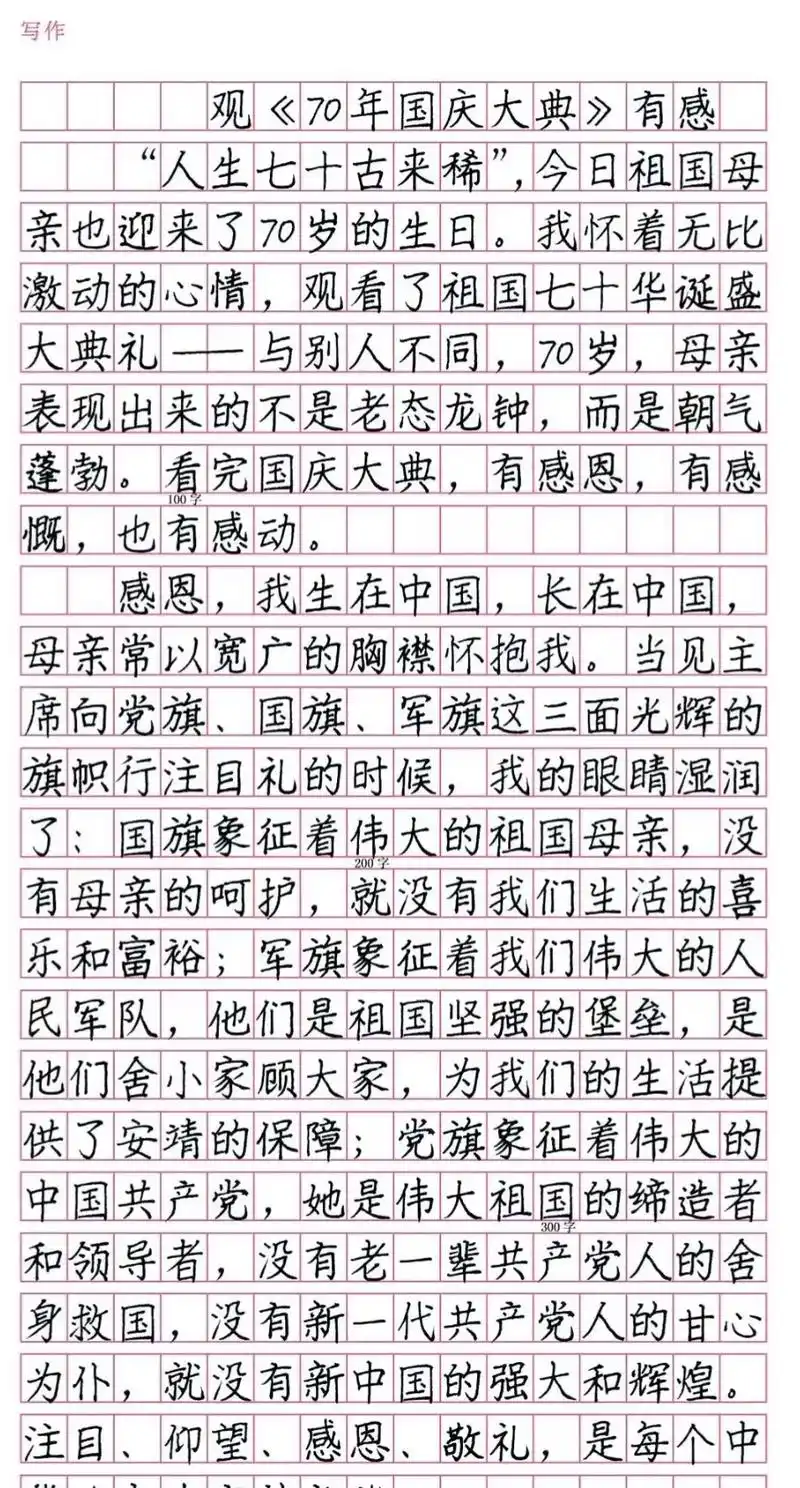 写作
观《70年国庆大典》有感
“人生七十古来稀”,今日祖国母
亲也迎来了70岁的生日。我怀着无比
激动的心情，观看了祖国七十华诞盛
大典礼——与别人不同，70岁，母亲
表现出来的不是老态龙钟，而是朝气
蓬勃。看完国庆大典，有感恩，有感
100字
慨，也有感动。
感恩，我生在中国，长在中国，
母亲常以宽广的胸襟怀抱我。当见主
席向党旗、国旗、军旗这三面光辉的
旗帜行注目礼的时候，我的眼睛湿润
了；国旗象征着伟大的祖国母亲，没
200字
有母亲的呵护，就没有我们生活的喜
乐和富裕；军旗象征着我们伟大的人
民军队，他们是祖国坚强的堡垒，是
他们舍小家顾大家，为我们的生活提
供了安靖的保障；党旗象征着伟大的
中国共产党，她是伟大祖国的缔造者
300字
和领导者，没有老一辈共产党人的舍
身救国，没有新一代共产党人的甘心
为仆，就没有新中国的强大和辉煌。
注目、仰望、感恩、敬礼，是每个中